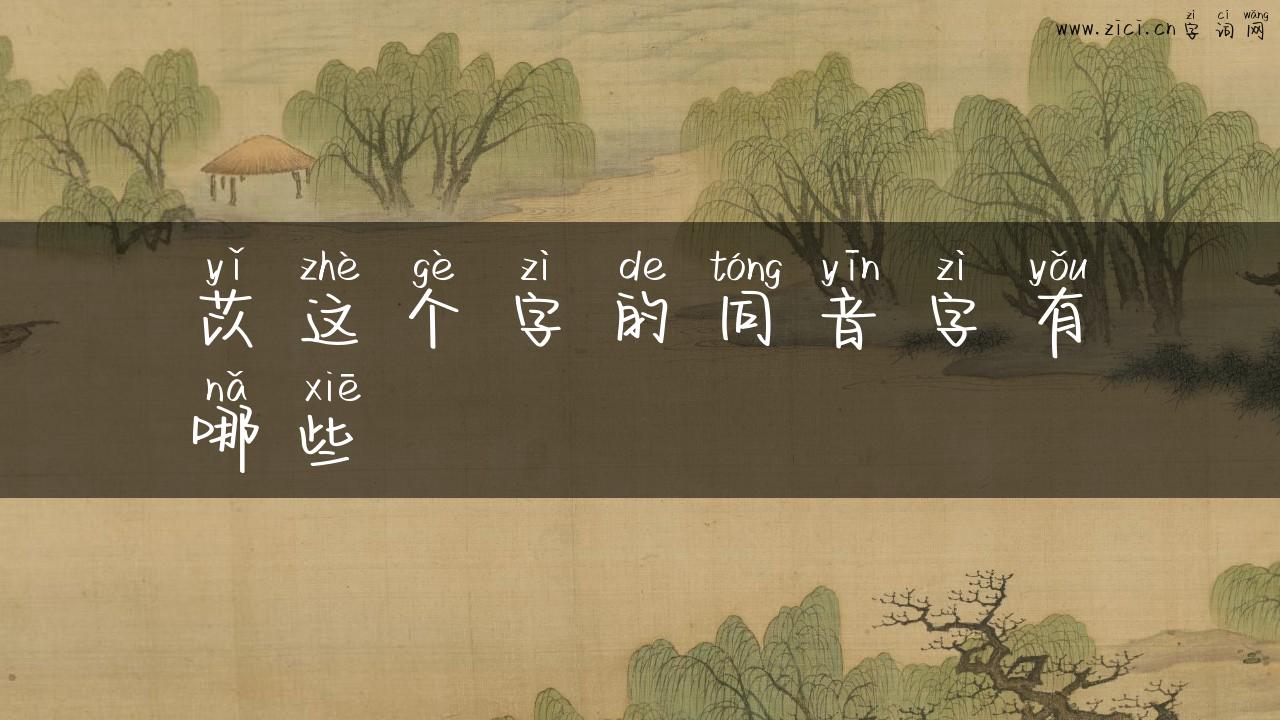 zì cí wǎng
www.zici.cn 字词网
yǐ zhè gè zì de tóng yīn zì yǒu
苡这个字的同音字有
nǎ xiē
哪些